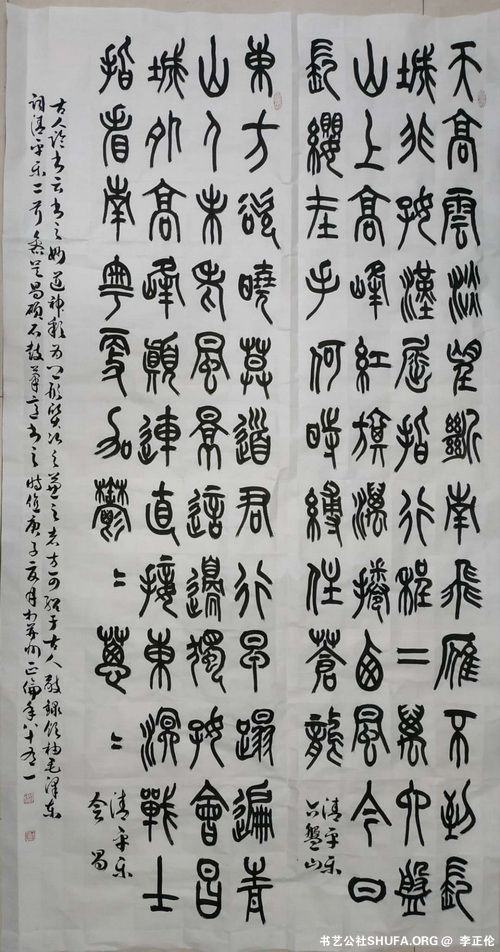 天高雲淡望斷南飛雁不到長
城非好漢屈指行程二萬六盤
山上高峰紅旗漫捲西風今日
長纓在手何時縛住蒼龍
清平乐
六盤山
東方欲曉莫道君行早踏遍青
山人未老風景這邊獨好會昌
城外高峰顛連直接東溟戰士
指看南粵更加鬱〻蔥〻
清平乐
会昌
古人论书云书之妙道神彩为上形质次之兼之者方可绍于古人敬録领袖毛泽东
词清平乐二首
昌硕石鼓笔意书之时值庚子夏月于苏州正倫年八十有一
书艺公社SHUFA.ORG @ 李正伦